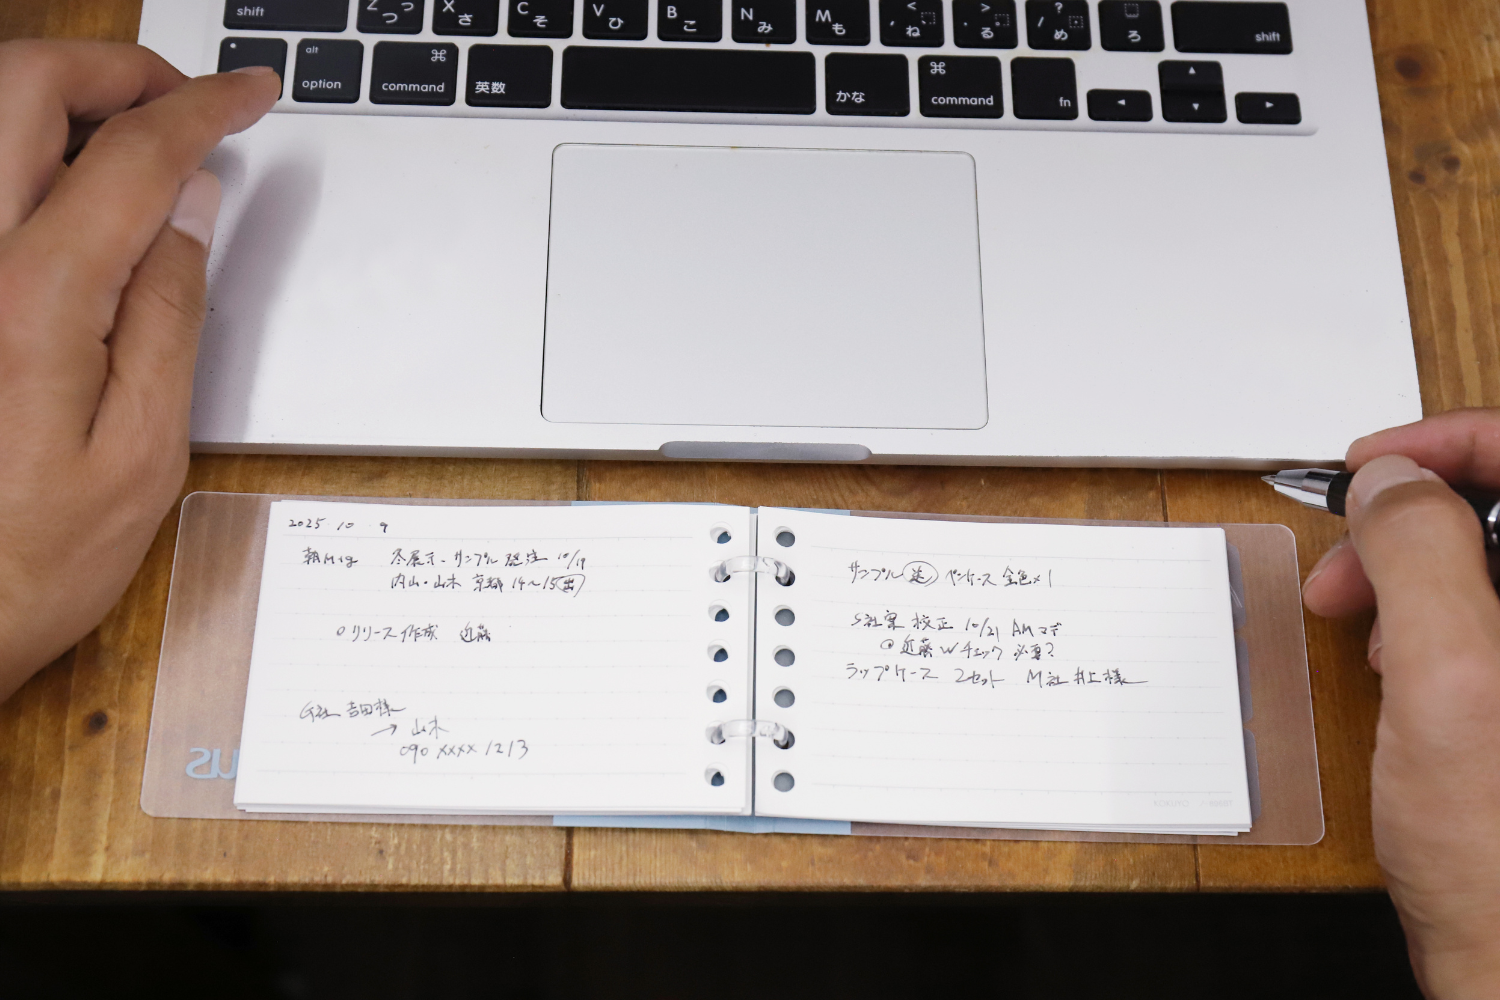 shift Z つ っ X さ C そ V ひ B こ N み M も , < ね . > る / ? め ろ shift
alt option ⌘ command 英数 かな ⌘ command fn ◀ ▲ ▼ ▶
2025.10.9
朝Mtg 冬展示・サンプル 発注 10/19
内山・山木 京都 14〜15 出
○リリース作成 近藤
G社 吉田様
→ 山木
090 xxxx 1213
サンプル 送 ペンケース 金色×1
S社案 校正 10/21 AMマデ
近藤 Wチェック 必要?
ラップケース 2セット M社 井上様
KOKUYO